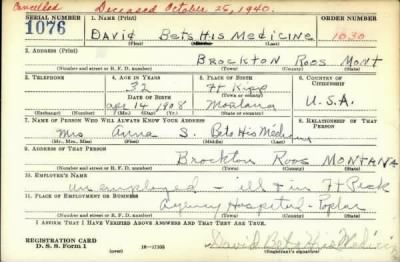 Cancelled Deceased October 25, 1940.
SERIAL NUMBER 1. NAME (Print) ORDER NUMBER
1076 David Bets His Medicine 1030
(First) (Middle) (Last)
2. ADDRESS (Print)
Brockton Roos Mont
(Number and street or R. F. D. number) (Town) (County) (State)
3. TELEPHONE 4. AGE IN YEARS 5. PLACE OF BIRTH 6. COUNTRY OF CITIZENSHIP
32 Ft Kipp
DATE OF BIRTH (Town or county)
Apr 14 1908 Montana U.S.A.
(Exchange) (Number) (Mo.) (Day) (Yr.) (State or country)
7. NAME OF PERSON WHO WILL ALWAYS KNOW YOUR ADDRESS 8. RELATIONSHIP OF THAT PERSON
Mrs Anna S. Bets His Medicine
(Mr., Mrs., Miss) (First) (Middle) (Last)
9. ADDRESS OF THAT PERSON
Brockton Roos MONTANA
(Number and street or R. F. D. number) (Town) (County) (State)
10. EMPLOYER'S NAME
unemployed - ill & in Ft Peck
11. PLACE OF EMPLOYMENT OR BUSINESS
Agency Hospital - Poplar
(Number and street or R. F. D. number) (Town) (County) (State)
I AFFIRM THAT I HAVE VERIFIED ABOVE ANSWERS AND THAT THEY ARE TRUE.
REGISTRATION CARD
D. S. S. Form 1 16-17105 David Bets His Medicine